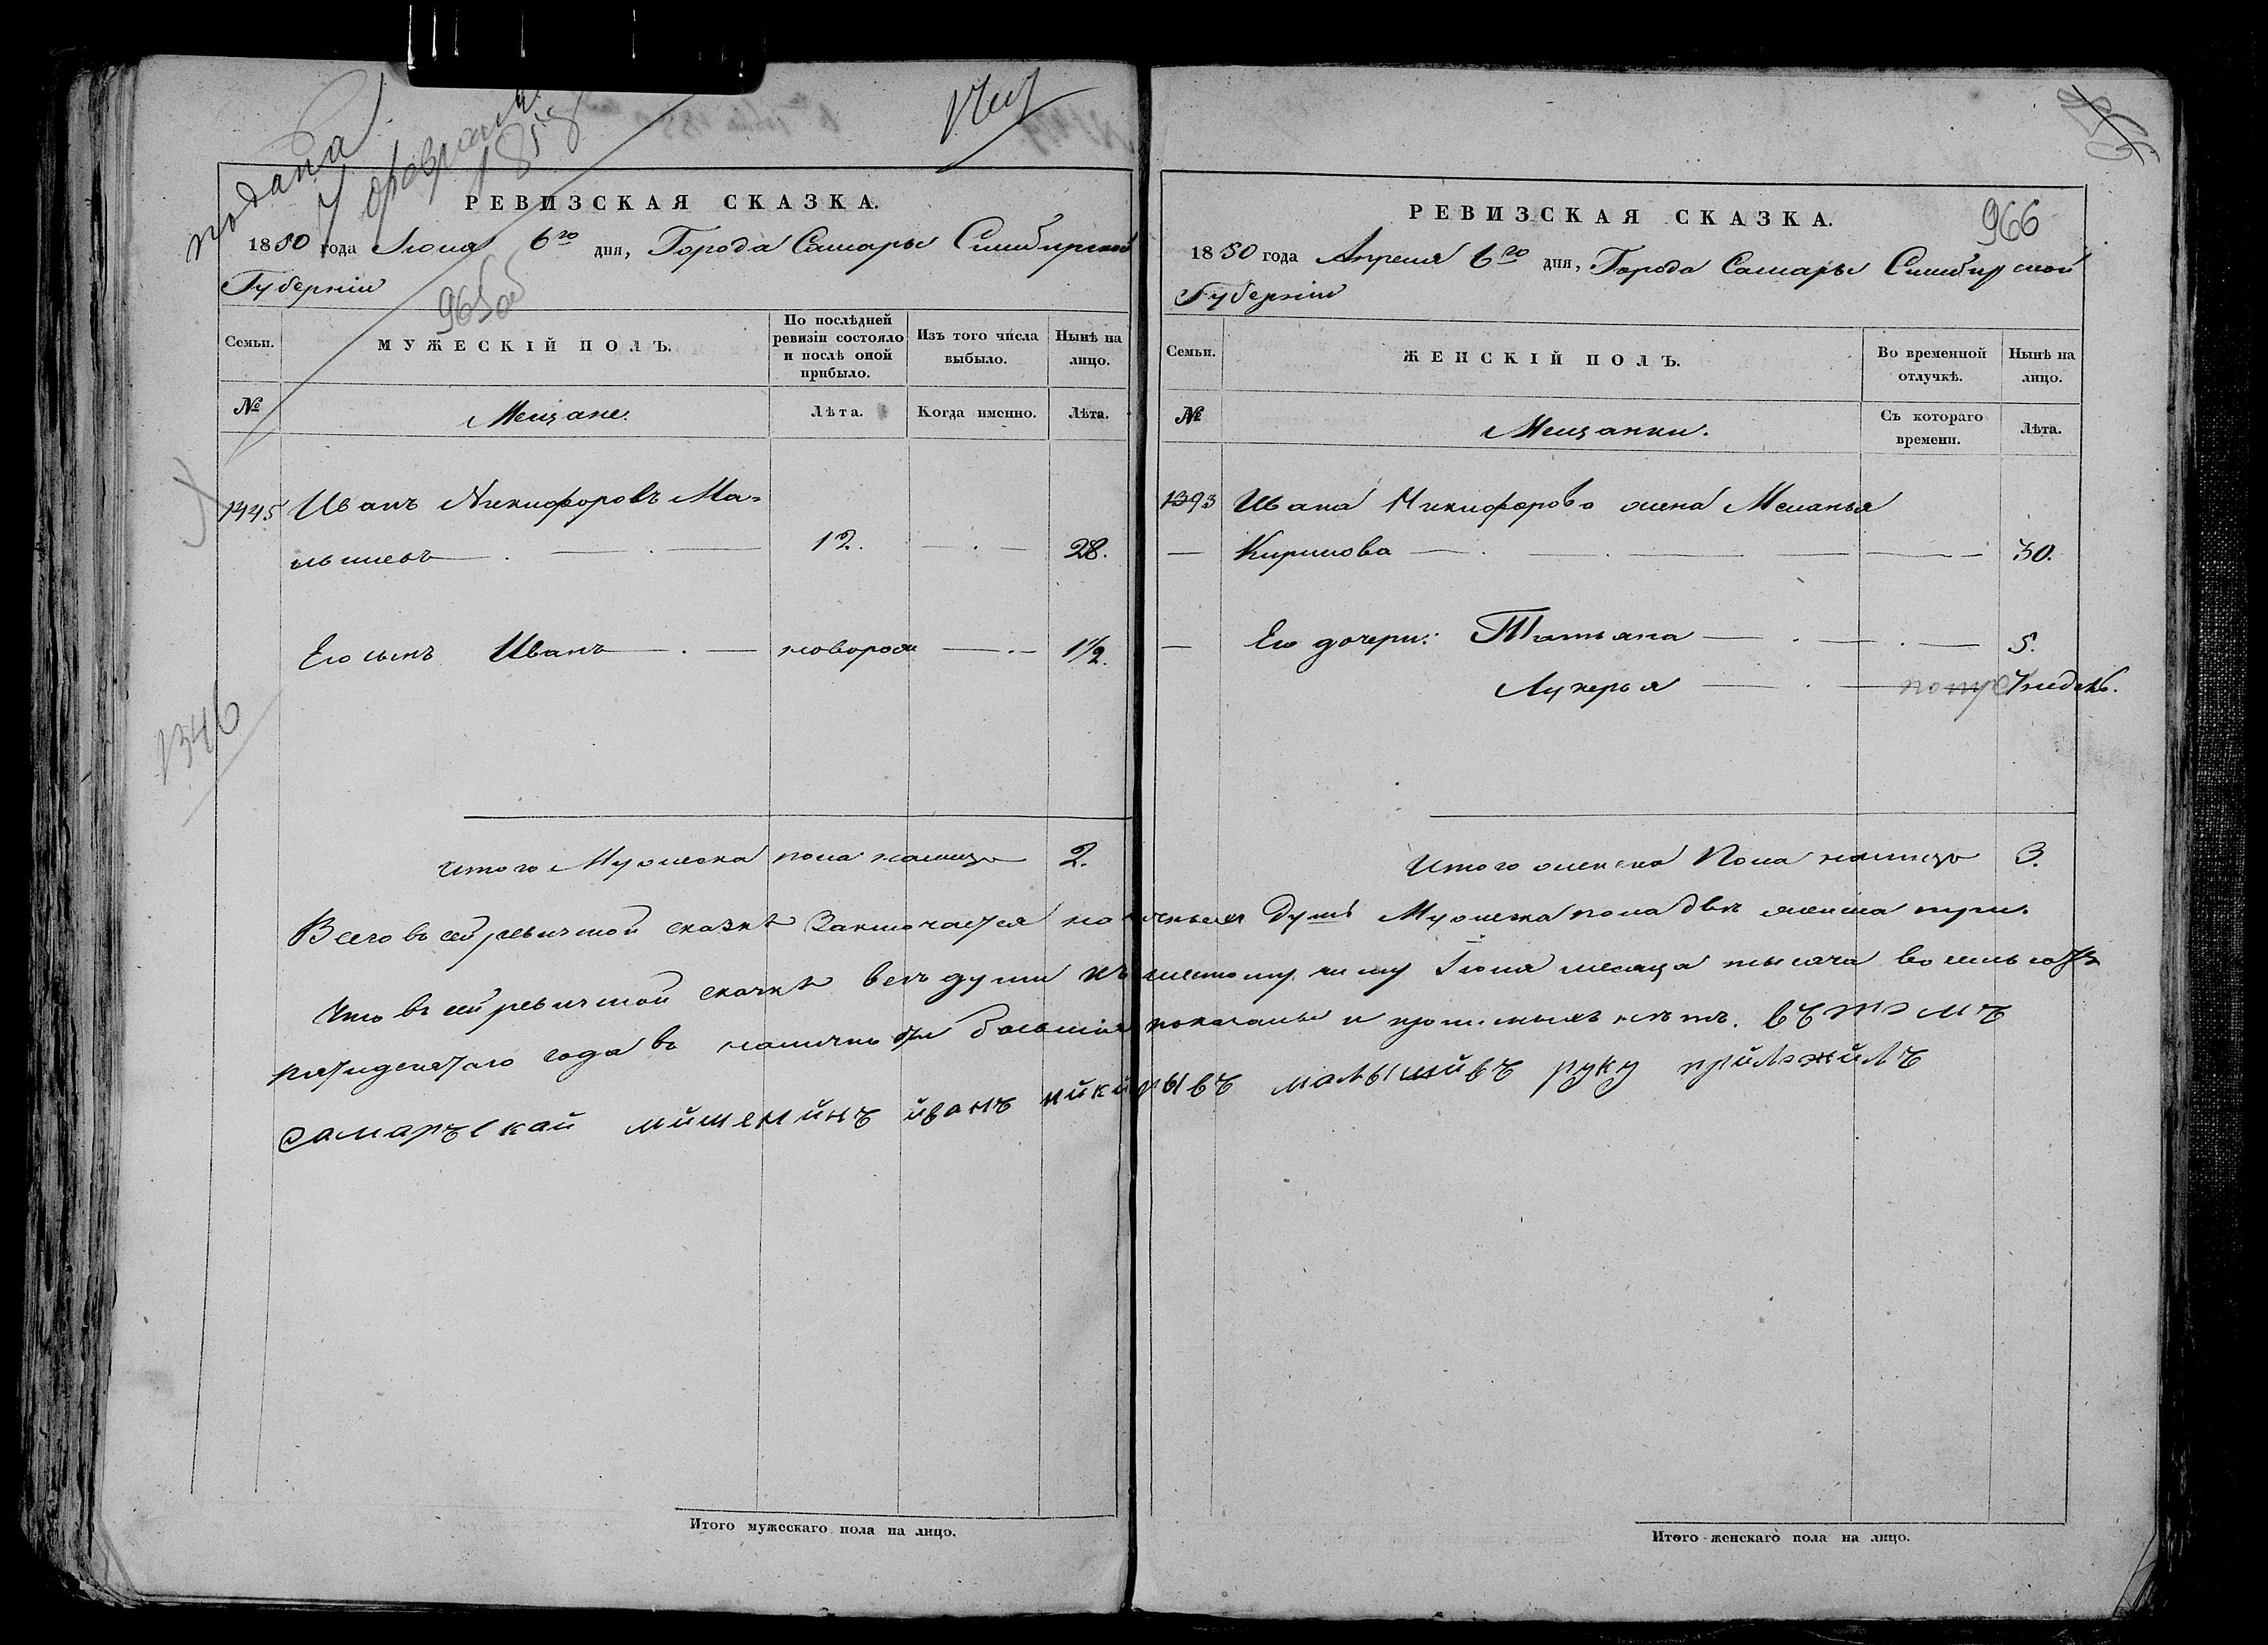 подана
7 февраля
1858
965 об
РЕВИЗСКАЯ СКАЗКА.
1850 года Июня 6го дня, Города Самары Симбирской
Губерніи
Семьи.
МУЖЕСКІЙ ПОЛЪ.
По послѣдней ревизіи состояло и послѣ оной прибыло.
Изъ того числа выбыло.
Нынѣ на лицо.
№
Мещане.
Лѣта.
Когда именно.
Лѣта.
1445 Иванъ Никифоровъ Ма-
лышевъ 12. 28.
Его сынъ Иванъ новорож 1½.
1346
Итого Мужеска пола налицо 2.
966
РЕВИЗСКАЯ СКАЗКА.
1850 года Апреля 6го дня, Города Самары Симбирской
Губерніи
Семьи.
ЖЕНСКІЙ ПОЛЪ.
Во временной отлучкѣ.
Нынѣ на лицо.
№
Мещанки.
Съ котораго времени.
Лѣта.
1393 Ивана Никифорова жена Меланья
Кирилова 30.
Его дочери: Татьяна 5.
Лукерья 7 недель.
Итого женска Пола налицо 3.
Всего въ сей ревизской сказкѣ Заключается наличныхъ душъ Мужеска пола двѣ женска три.
Что въ сей ревизской сказкѣ всѣ души къ шестому числу Іюня месяца тысяча восемьсотъ
пятидесятаго года въ наличности бывшія показаны и прописныхъ нѣтъ. вътомъ
самаръскай мйшенйнъ йванъ нйкйфрывъ малышйвъ руку прйложйлъ
Итого мужескаго пола на лицо.
Итого женскаго пола на лицо.